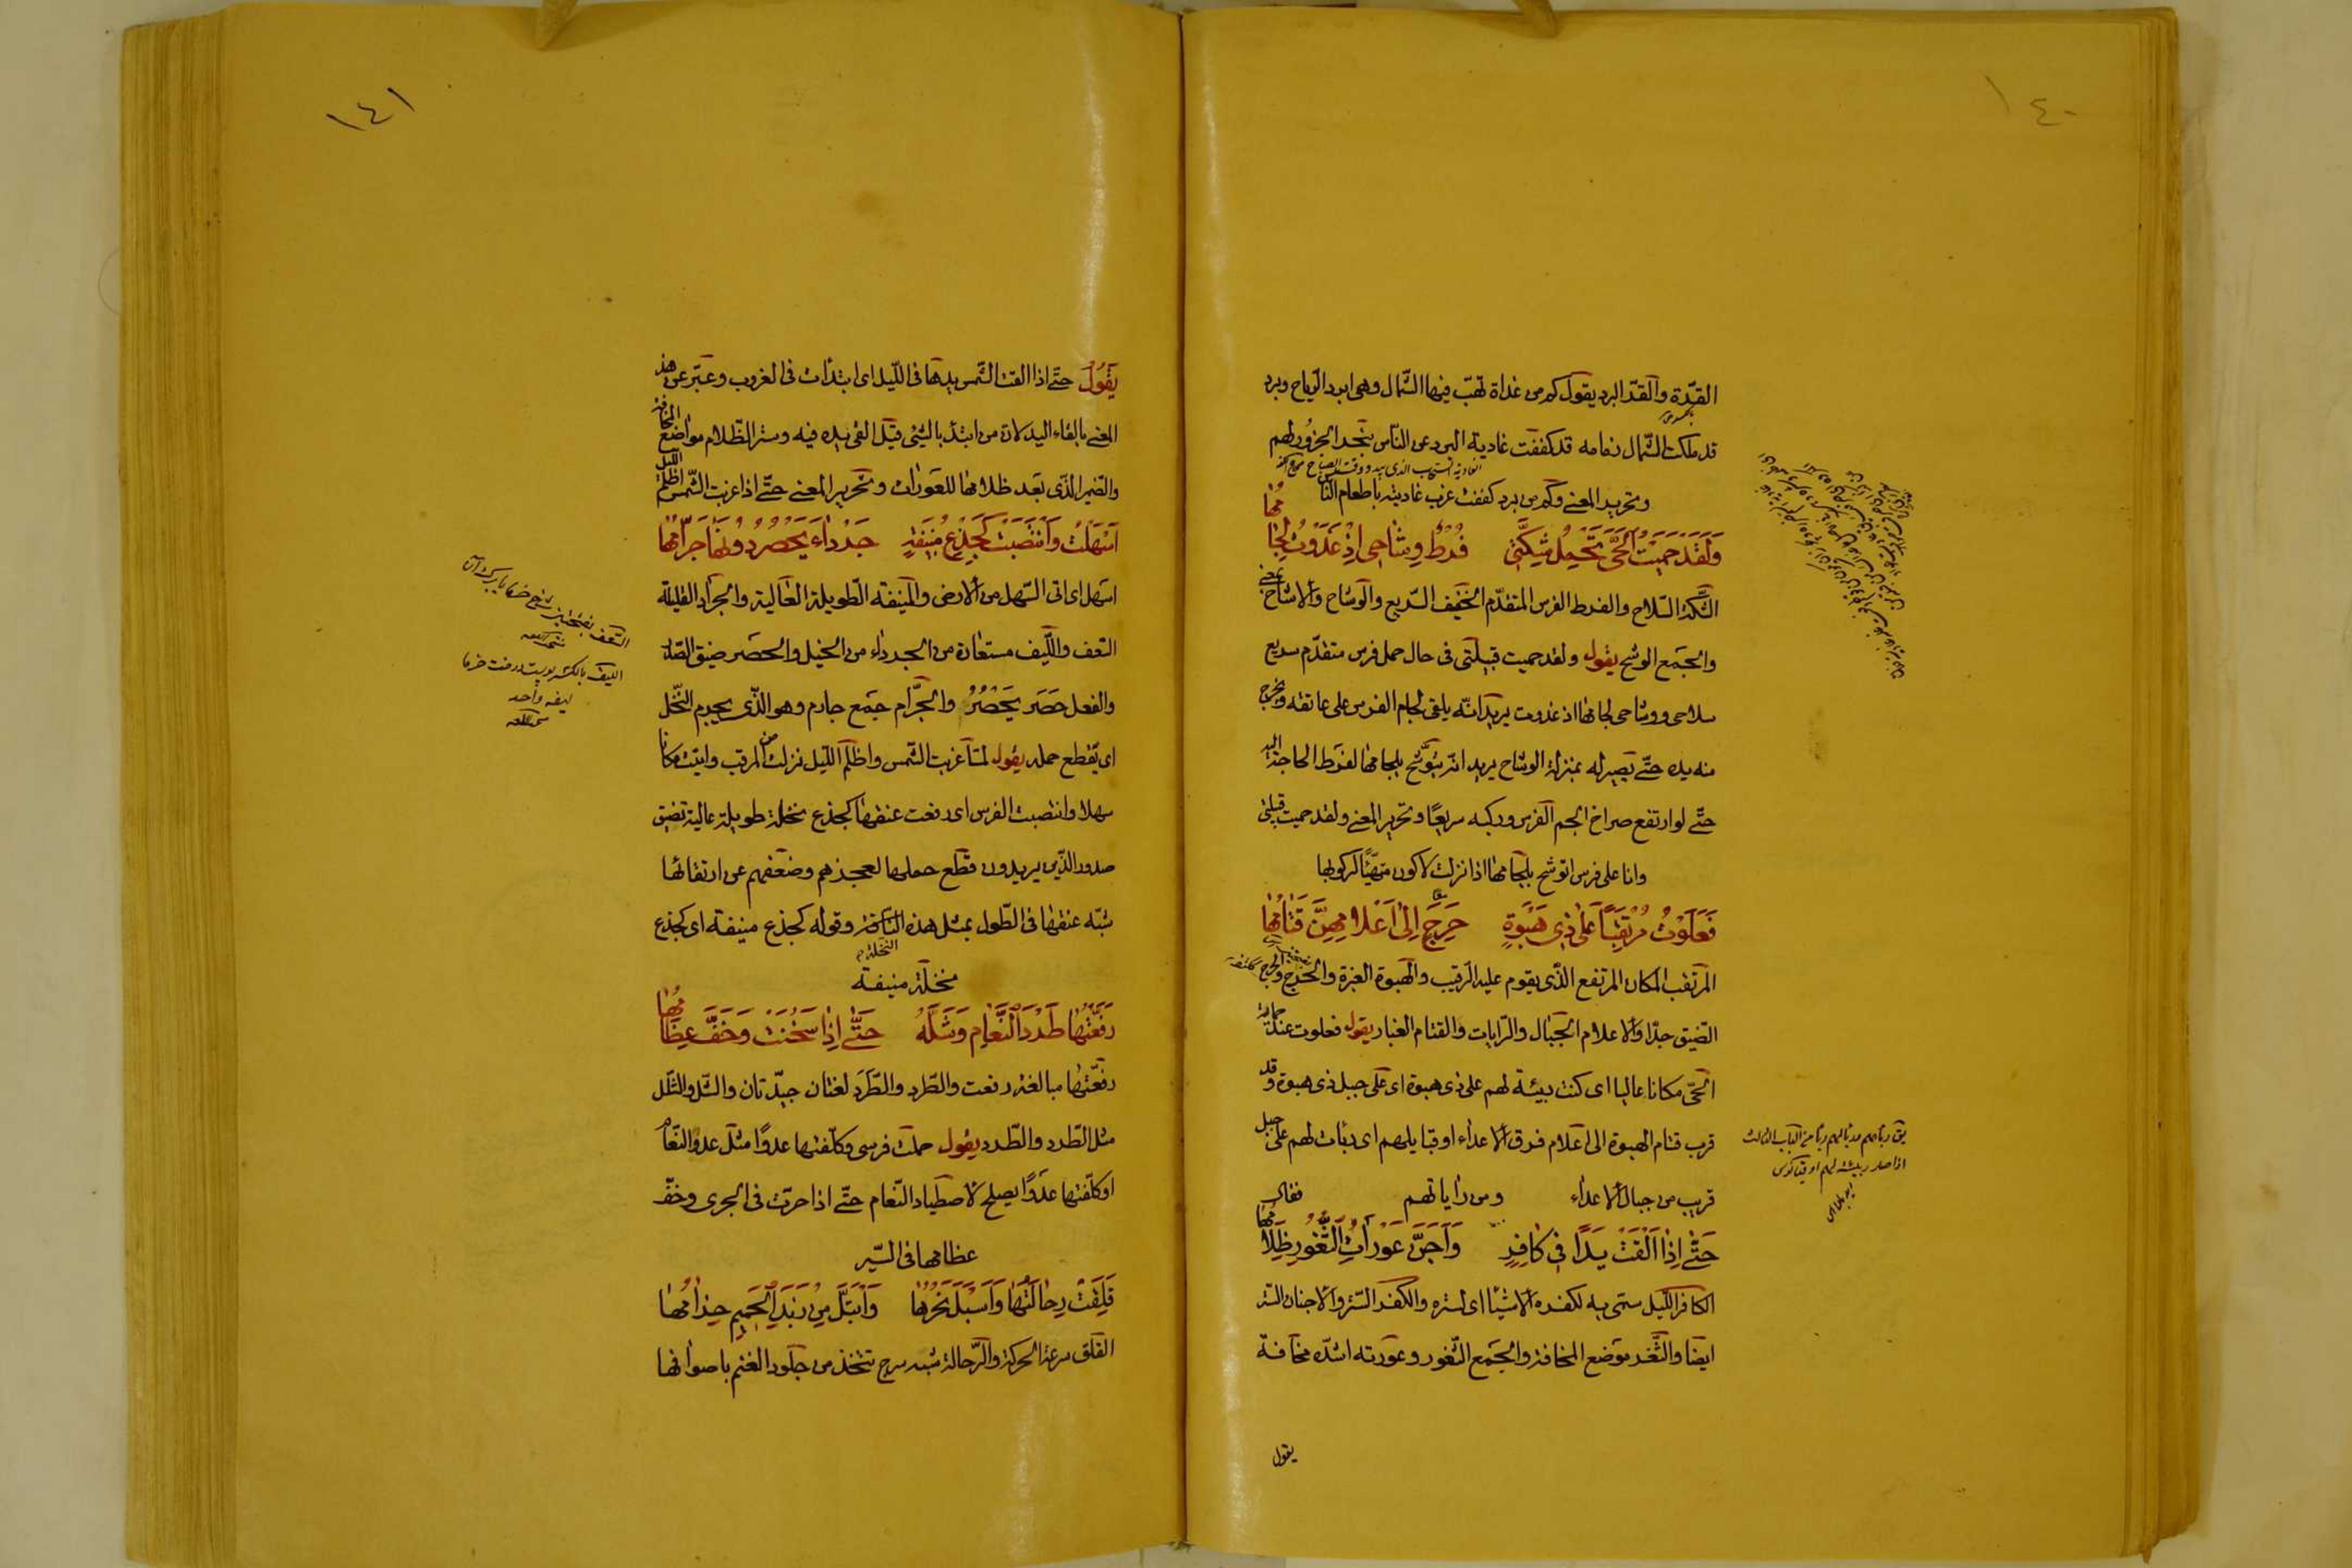 ١٤٠
القرّة والقرّ البرد يقول كم من غداة تهبّ فيها الشّمال وهى ابرد الرّياح وبرد
قد ملكت الشّمال زمامه قد كففت عادية البرد عن النّاس بنحر الجزُور لهم
وتحرير المعنى وكم من برد كففت غرب عاديته باطعام النّاس
وَلَقَدْ حَمَيْتُ الْحَىَّ تَحْمِلُ شِكَّتى فُرُطٌ وِشاحى اِذْ غَدَوْتُ لِجامُها
الشّكّة السّلاح والفرط الفرس المتقدّم الخفيف السّريع والوشاح والاشاح بمعنى
والجمع الوشح يقول ولقد حميت قبيلتى فى حال حمل فرس متقدّم سريع
سلاحى ووشاحى لجامها اذ غدوت يريد انّه يلقى لجام الفرس على عاتقه ويخرج
منه يده حتّى يصير له بمنزلة الوشاح يريد انّه يتوشّح بلجامها لفرط الحاجة اليه
حتّى لو ارتفع صراخ الجم الفرس وركبه سريعًا وتحرير المعنى ولقد حميت قبيلتى
وانا على فرس اتوشّح بلجامها اذا نزلت لاكون متهيّئًا لركوبها
فَعَلَوْتُ مُرْتَقِبًا عَلى ذى هَبْوَةٍ حَرِجٍ اِلى اَعْلامِهِنَّ قَتامُها
المرتقب المكان المرتفع الذّى يقوم عليه الرّقيب والهبوة الغبرة والحرج
الضّيق جدّا والاعلام الجبال والرّايات والقتام الغبار يقول فعلوت عند حماية
الحىّ مكانا عاليا اى كنت ربيئة لهم على ذى هبوة اى على جبل ذى هبوة وقد
قرب قتام الهبوة الى اعلام فرق الاعداء او قبايلهم اى ربأت لهم على جبل
قريب من جبال الاعداء ومن راياتهم فقال
حَتّى اِذا اَلْقَتْ يَدًا فى كافِرٍ وَاَجَنَّ عَوْراتِ الثُّغُورِ ظَلامُها
الكافر اللّيل سمّى به لكفره الاشيا اى لستره والكفر السّتر والاجنان السّتر
ايضا والثّغر موضع المخافة والجمع الثّغور وعورته اشدّه مخافة
يقول
١٤١
يقُولُ حتّى اذا القت الشّمس يدها فى اللّيل اى ابتدأت فى الغروب وعبّر عن هذا
المعنى بالقاء اليد لان من ابتدأ بالشّىء قيل القى يده فيه وستر الظّلام مواضع المخافة
والضّمير الذّى بعد ظلامها للعورات وتحرير المعنى حتّى اذا غربت الشّمس واظلم اللّيل
اَسْهَلْتُ وَانْتَصَبَتْ كَجِذْعِ مُنيفَةٍ جَرْداءَ يَحْصَرُ دُونَها جُرّامُها
اسهل اى اتى السّهل من الارض والمنيفة الطّويلة العالية والجرداء القليلة
السّعف واللّيف مستعارة من الجرداء من الخيل والحصر ضيق الصّدر
والفعل حصر يحصر والجرّام جمع جارم وهو الذّى يجرم النّخل
اى يقطع حمله يقول لمّا غربت الشّمس واظلم اللّيل نزلت من المرقب واتيت مكانا
سهلا وانتصبت الفرس اى رفعت عنقها كجذع نخلة طويلة عالية تضيق
صدور الذّين يريدون قطع حملها لعجزهم وضعفهم عن ارتقائها
شبّه عنقها فى الطّول بمثل هذه النّخلة وقوله كجذع منيفة اى كجذع
نخلة منيفة
رَفَّعْتُها طَرَدَ النَّعامِ وَشَلَّهُ حَتّى اِذا سَخُنَتْ وَخَفَّ عِظامُها
رفّعتها مبالغة رفعت والطّرد والطّرَد لغتان جيّدتان والشّلّ والشّلل
مثل الطّرد والطّرد يقول حملت فرسى وكلّفتها عدوًا مثل عدو النّعام
او كلّفتها عدوًا يصلح لاصطياد النّعام حتّى اذا حرّت فى الجرى وخفّ
عظامها فى السّير
قَلِقَتْ رِحالَتُها وَاَسْبَلَ نَحْرُها وَابْتَلَّ مِنْ زَبَدِ الْحَميمِ حِزامُها
القلق سرعة الحركة والرّحالة شبه سرج تتّخذ من جلود الغنم باصوافها